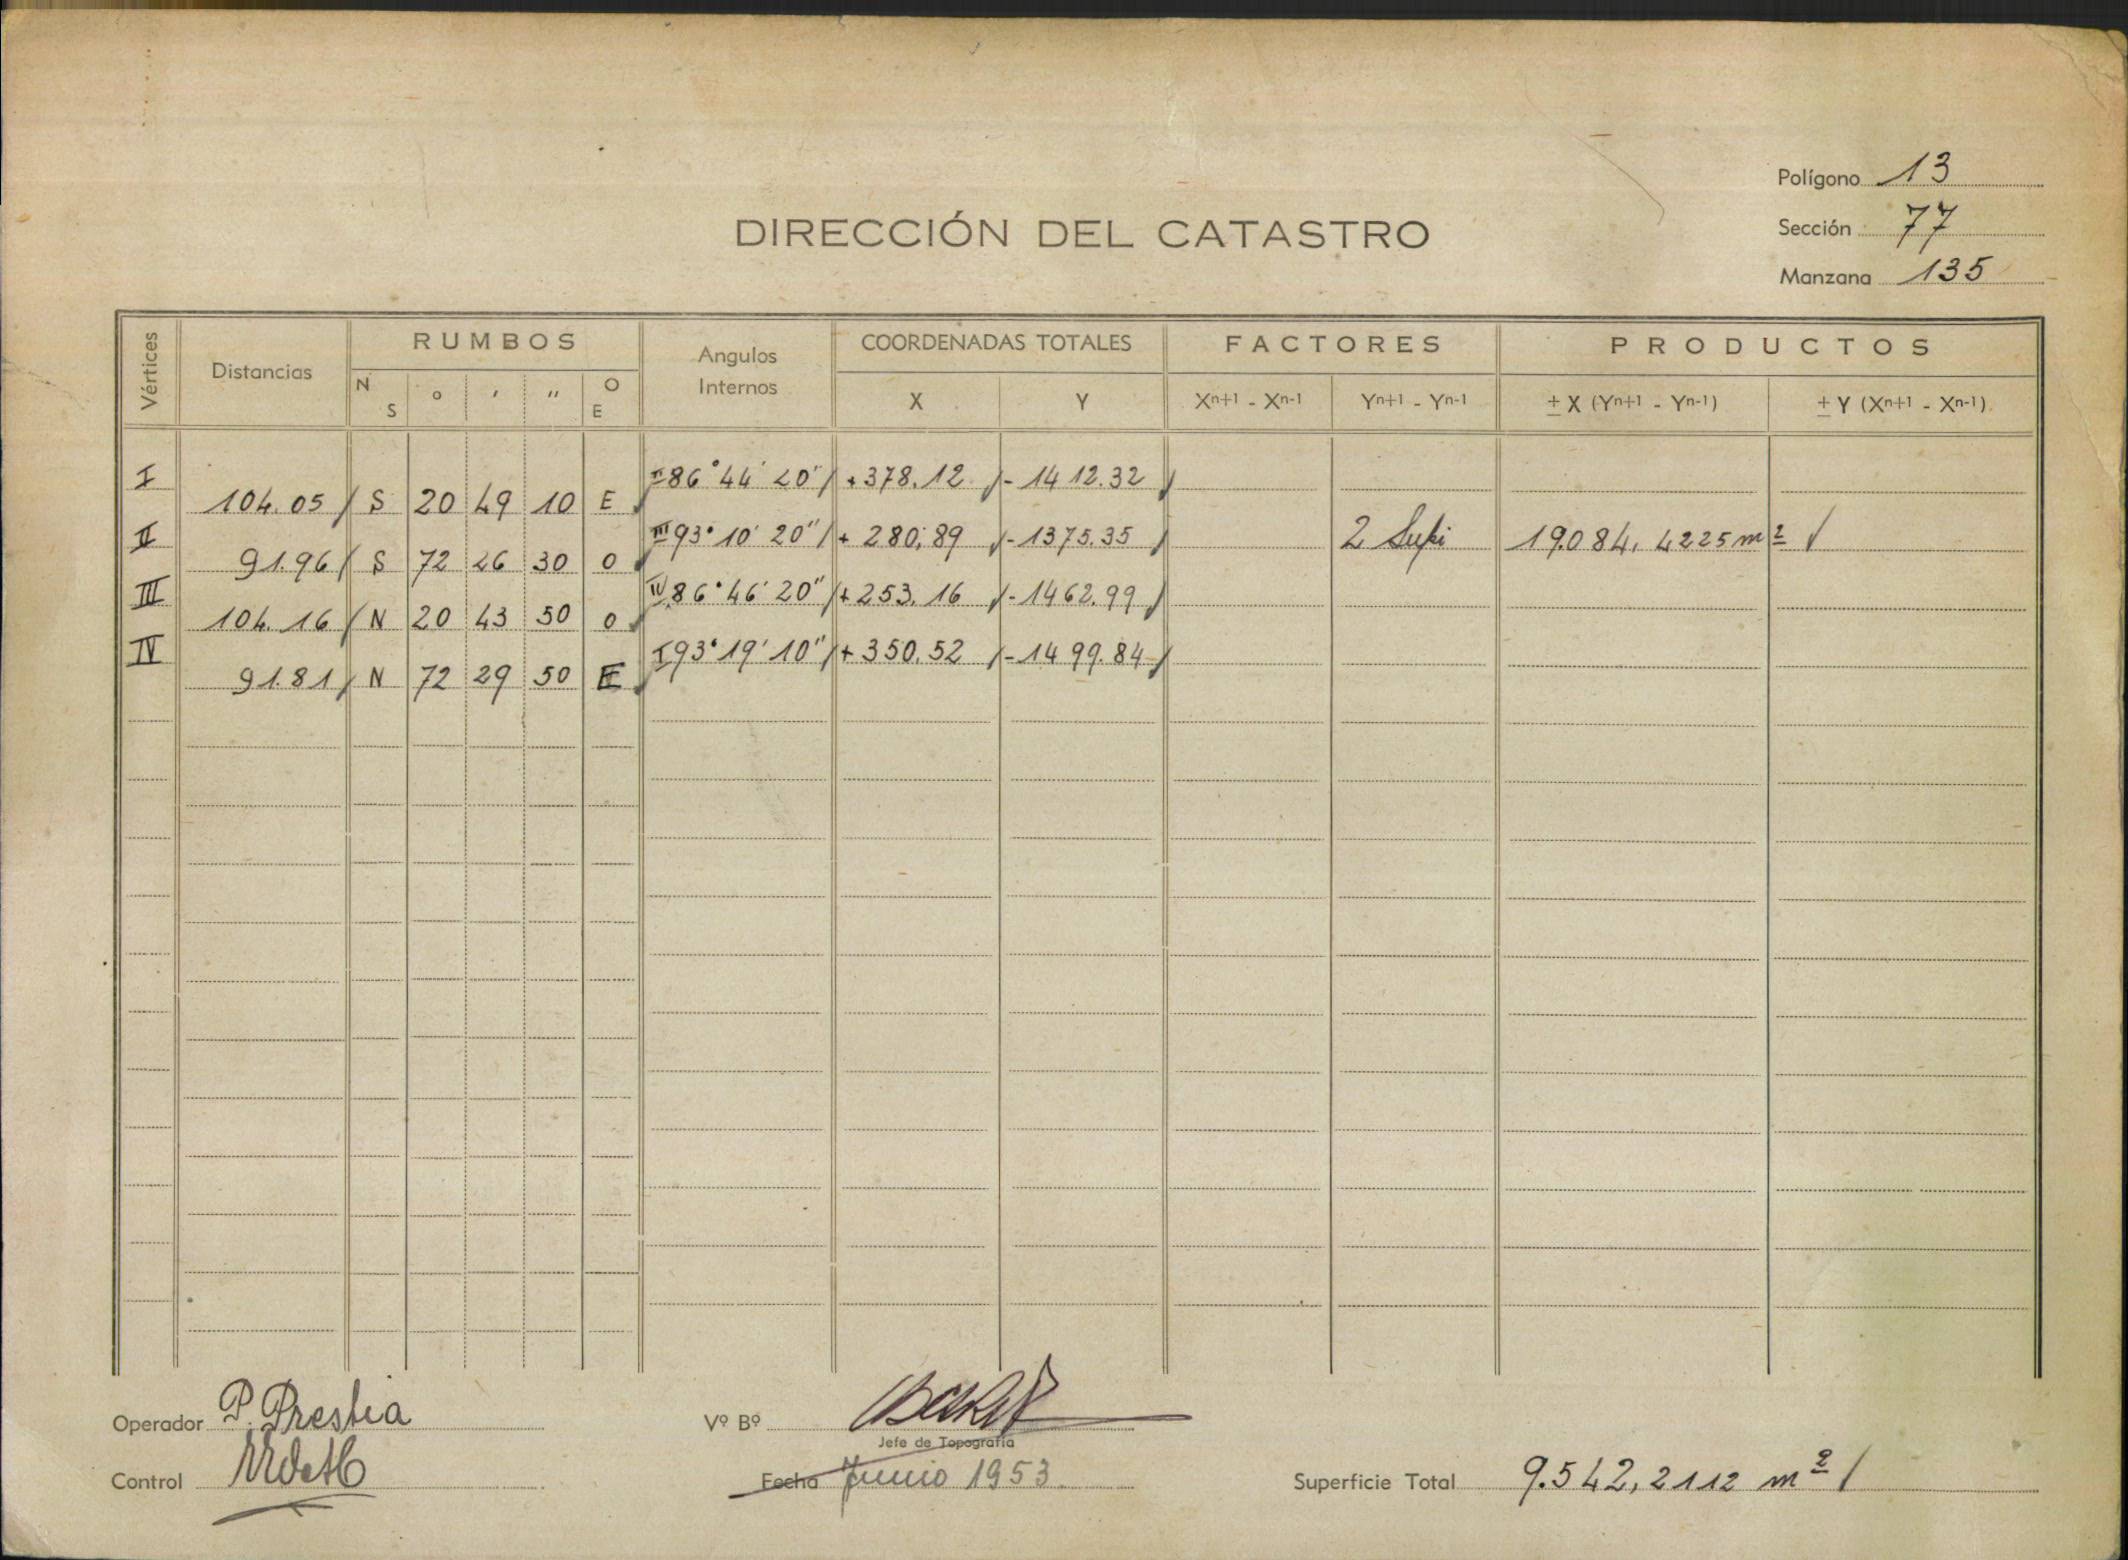 Polígono 13
DIRECCIÓN DEL CATASTRO
Sección 77
Manzana 135
Vértices Distancias RUMBOS Angulos Internos COORDENADAS TOTALES FACTORES PRODUCTOS
N S ° ' " O E X Y Xn+1 - Xn-1 Yn+1 - Yn-1 ± X (Yn+1 - Yn-1) ± Y (Xn+1 - Xn-1)
I II 86° 44' 20" / + 378.12 / - 1412.32 /
104.05 / S 20 49 10 E
II III 93° 10' 20" / + 280.89 / - 1375.35 / 2 Supi 19.084, 4225 m2 /
91.96 / S 72 26 30 O
III IV 86° 46' 20" / + 253.16 / - 1462.99 /
104.16 / N 20 43 50 O
IV I 93° 19' 10" / + 350.52 / - 1499.84 /
91.81 / N 72 29 50 E
Operador P. Prestia Vº Bº
Jefe de Topografía
Control Fecha Junio 1953 Superficie Total 9.542,2112 m2 /